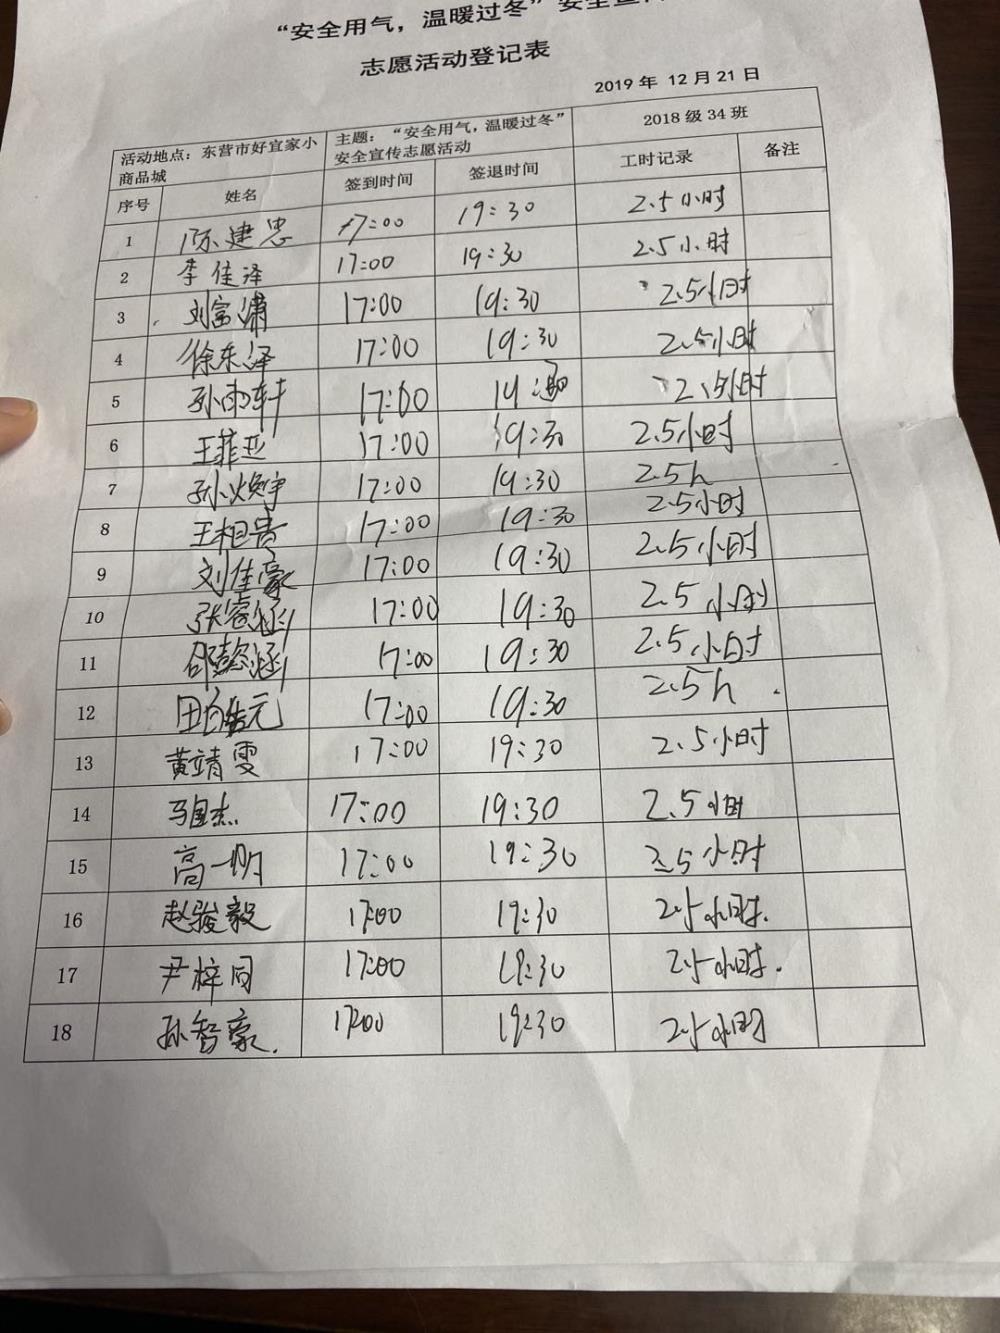 “安全用气，温暖过冬”安全宣传
志愿活动登记表
2019 年 12 月 21 日
活动地点：东营市好宜家小商品城 主题：“安全用气，温暖过冬”安全宣传志愿活动 2018 级 34 班
序号 姓名 签到时间 签退时间 工时记录 备注
1 陈建忠 17:00 19:30 2.5小时
2 李佳泽 17:00 19:30 2.5小时
3 刘富潇 17:00 19:30 2.5小时
4 徐东泽 17:00 19:30 2.5小时
5 孙雨轩 17:00 19:30 2.5小时
6 王菲亚 17:00 19:30 2.5小时
7 孙焕宇 17:00 19:30 2.5h
8 王相贵 17:00 19:30 2.5小时
9 刘佳豪 17:00 19:30 2.5小时
10 张睿涵 17:00 19:30 2.5小时
11 邵懿涵 17:00 19:30 2.5小时
12 田 元 17:00 19:30 2.5h
13 黄靖雯 17:00 19:30 2.5小时
14 马国杰 17:00 19:30 2.5小时
15 高一明 17:00 19:30 2.5小时
16 赵骏毅 17:00 19:30 2.5小时.
17 尹梓同 17:00 19:30 2.5小时.
18 孙智豪. 17:00 19:30 2.5小时